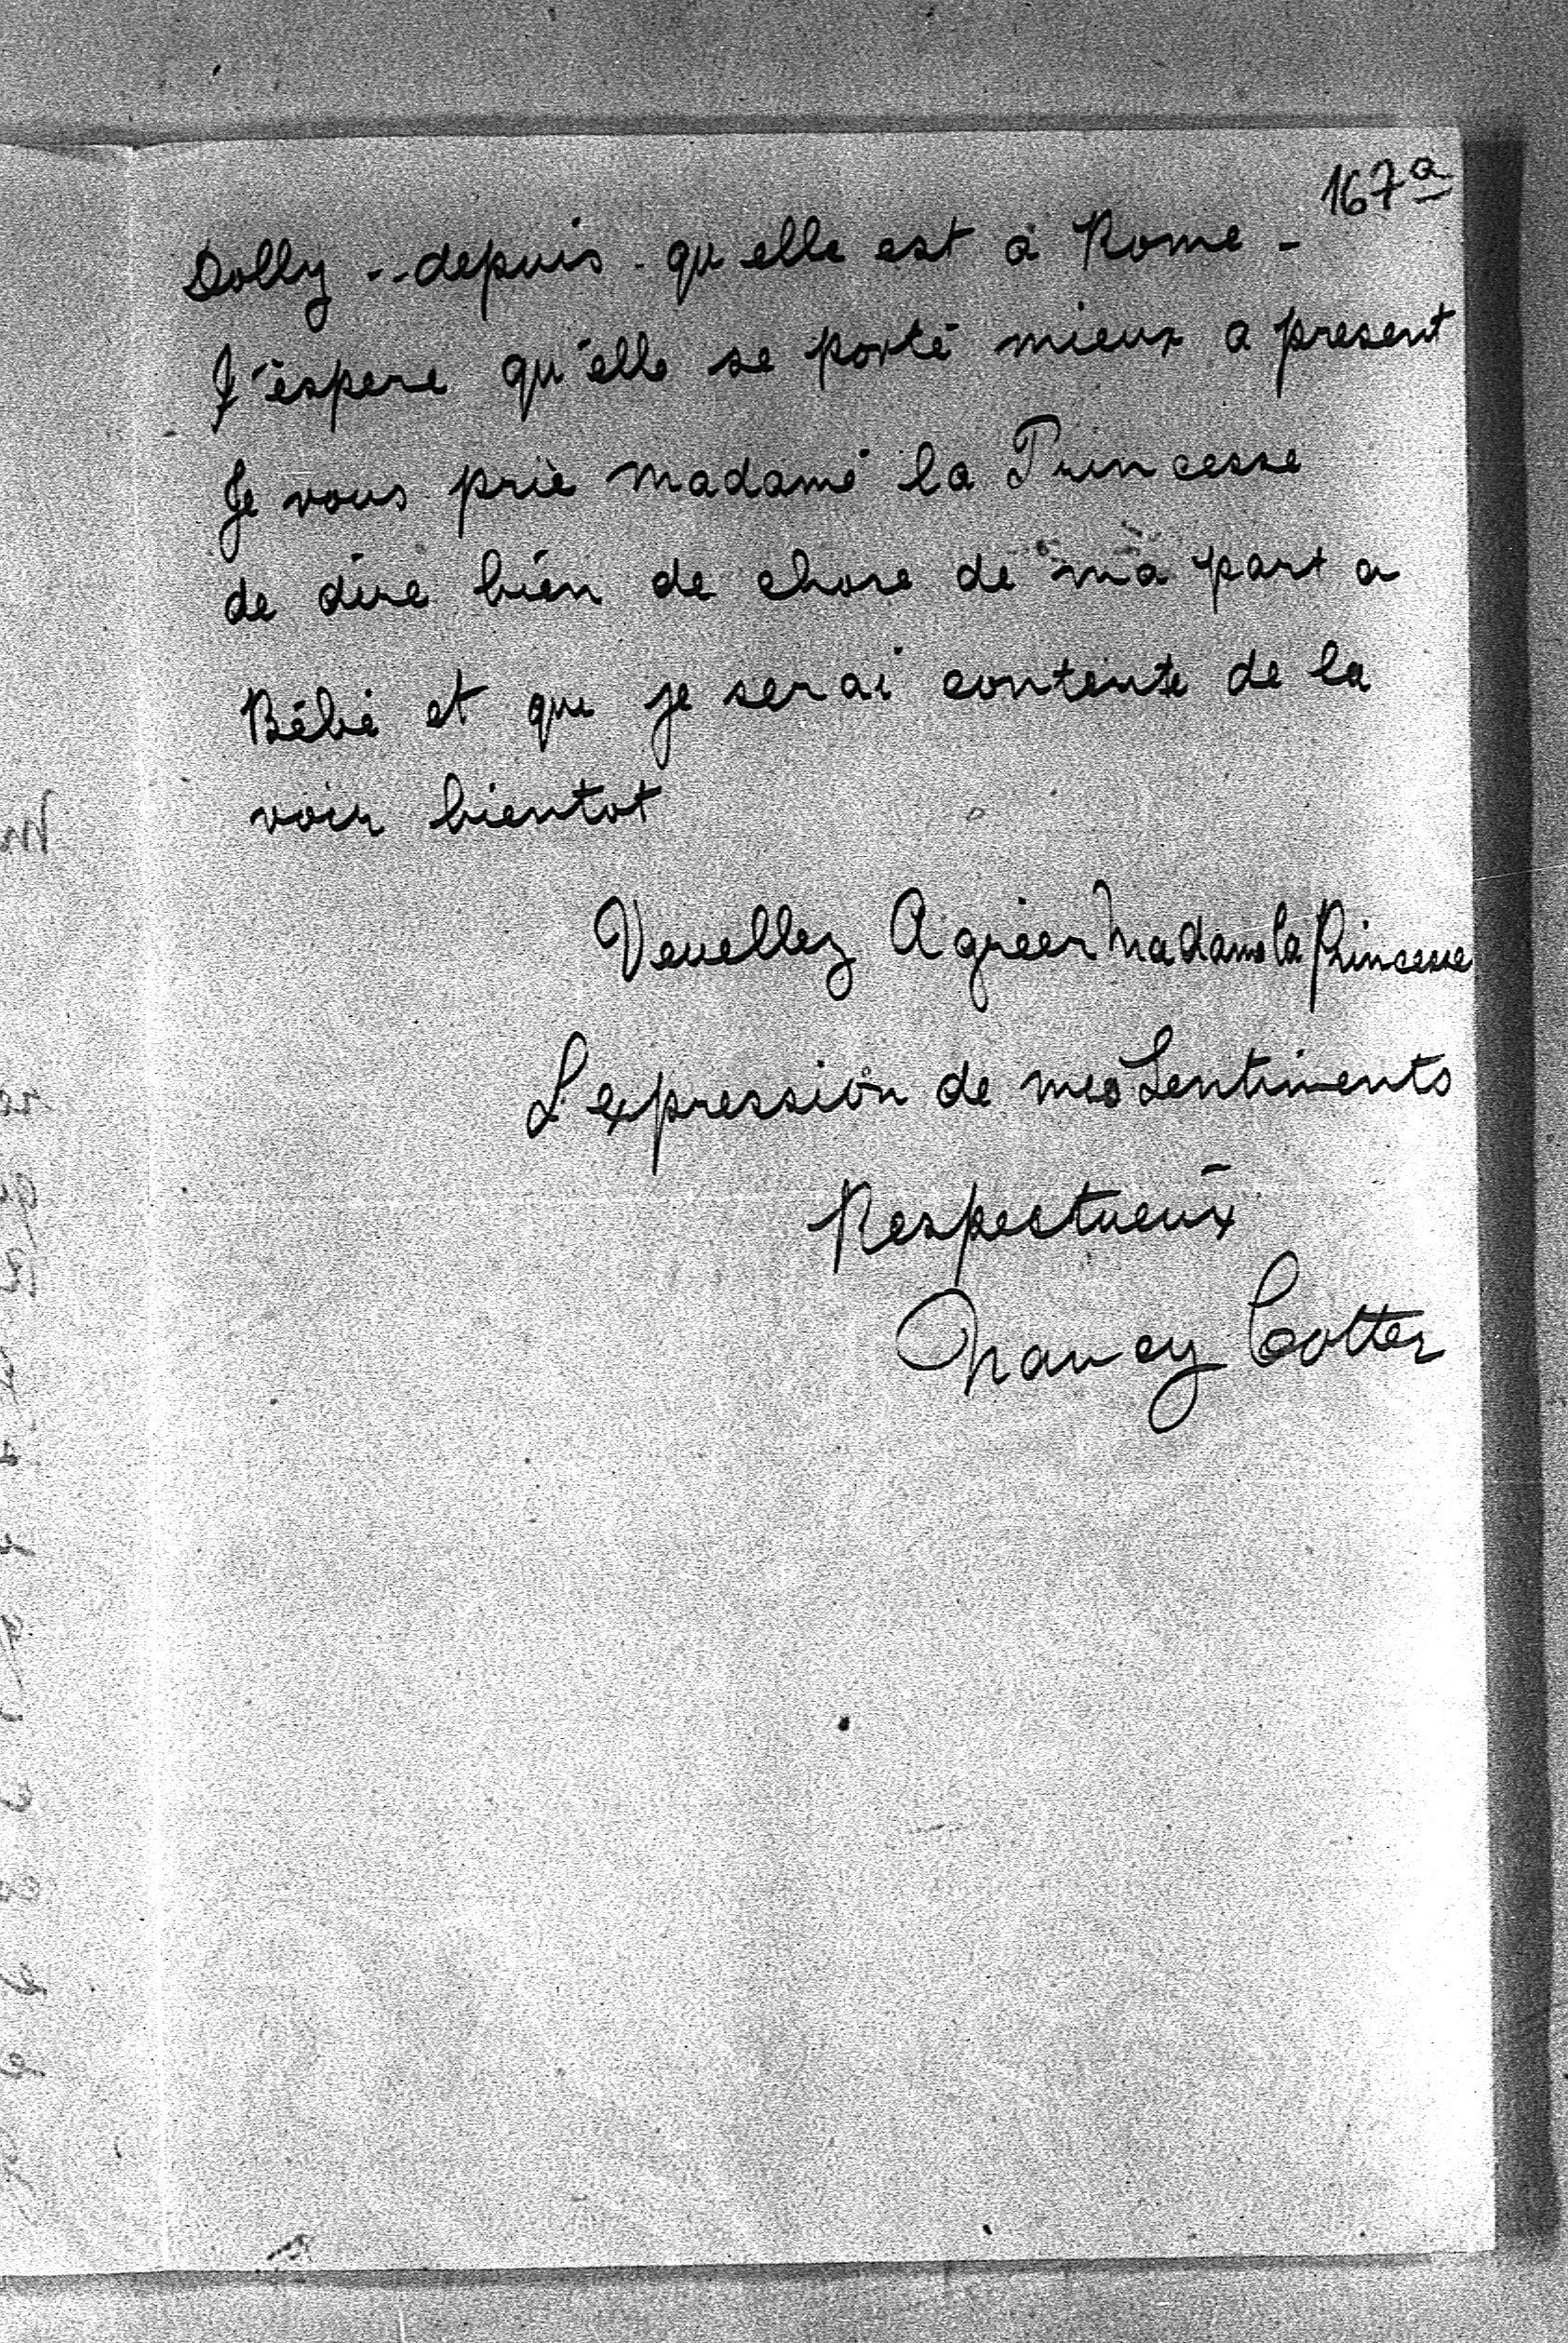 167a
Dolly -- depuis - qu elle est à Rome -
J'éspere qu'élle se porté mieux a present
Je vous prie Madame la Princesse
de dire bién de chose de ma part a
Bébé et que je serai contente de la
voir bientot
Veuellez Agréer Madame la Princesse
L'expression de mes Sentiments
Respectueux
Nancy Cotter